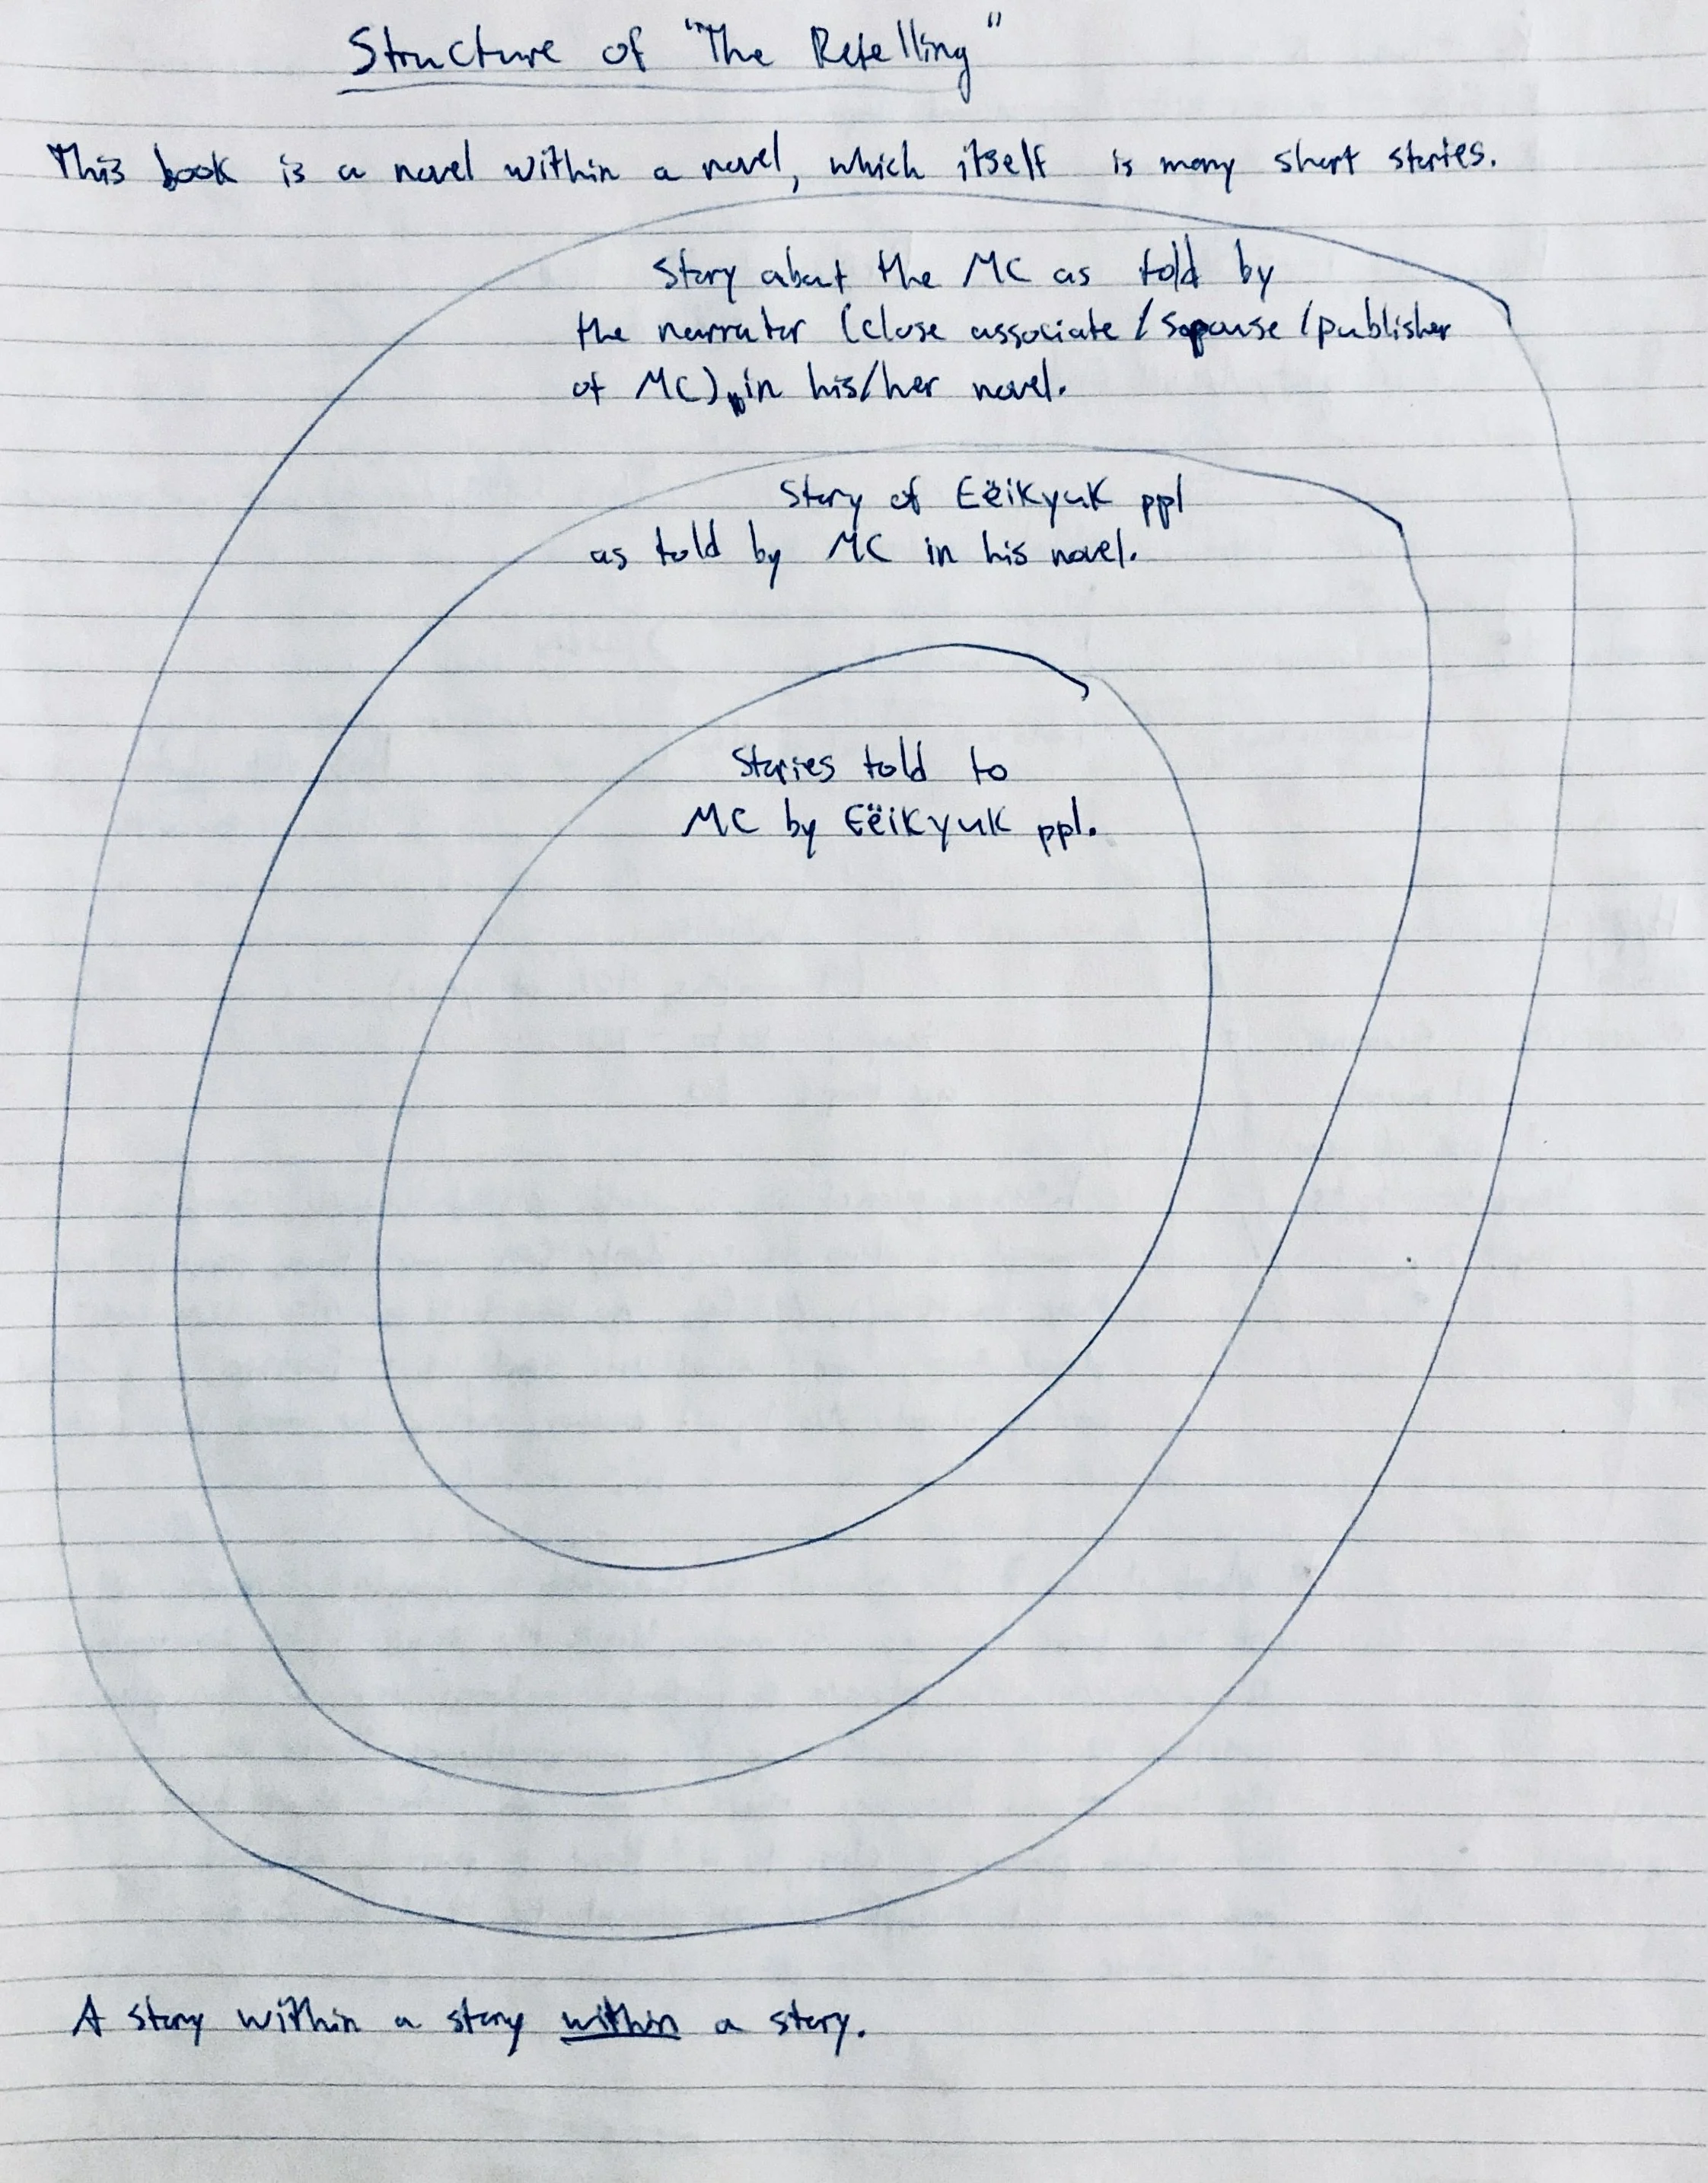 Structure of "The Retelling"
This book is a novel within a novel, which itself is many short stories.
Story about the MC as told by
the narrator (close associate / spouse / publisher
of MC), in his/her novel.
Story of Eëikyuk ppl
as told by MC in his novel.
Stories told to
MC by Eëikyuk ppl.
A story within a story within a story.